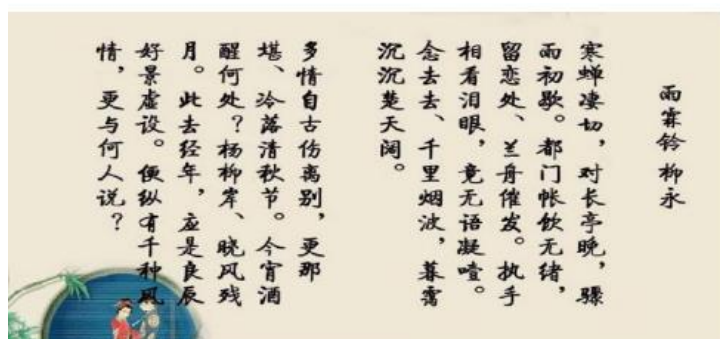 雨霖铃 柳永
寒蝉凄切，对长亭晚，骤
雨初歇。都门帐饮无绪，
留恋处、兰舟催发。执手
相看泪眼，竟无语凝噎。
念去去、千里烟波，暮霭
沉沉楚天阔。
多情自古伤离别，更那
堪、冷落清秋节。今宵酒
醒何处？杨柳岸、晓风残
月。此去经年，应是良辰
好景虚设。便纵有千种风
情，更与何人说？